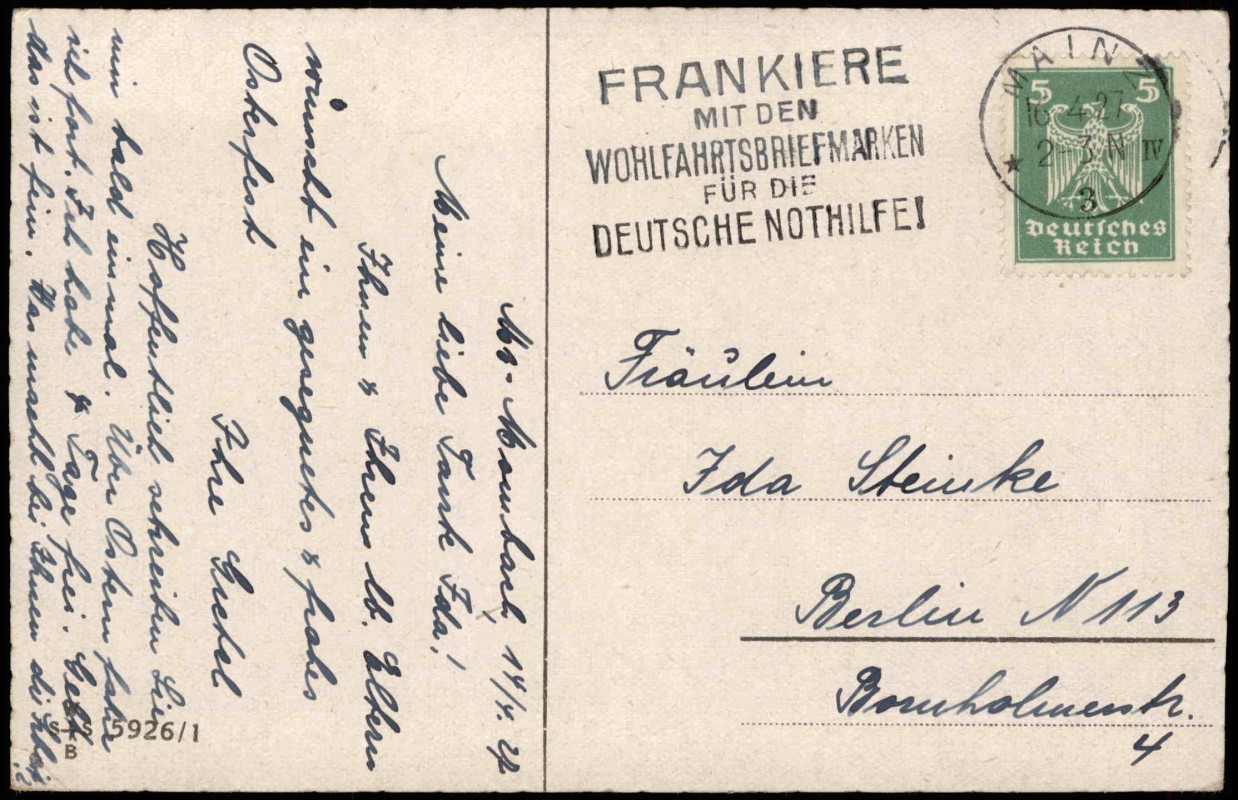 Mz-Mombach, 14/4. 27
Meine liebe Tante Ida!
Ihnen & Ihren lb. Eltern
wünscht ein gesegnetes & frohes
Osterfest
Ihre Gretel
Hoffentlich schreiben Sie
mir bald einmal. Über Ostern fahre
ich fort. Ich habe 8 Tage frei. Gelt
das ist fein. Was macht bei Ihnen die
S S 5926/1
B
FRANKIERE
MIT DEN
WOHLFAHRTSBRIEFMARKEN
FÜR DIE
DEUTSCHE NOTHILFE!
MAINZ
16.4.27
2-3 N IV
3
5 5
Deutsches
Reich
Fräulein
Ida Steinke
Berlin N 113
Bornholmerstr.
4